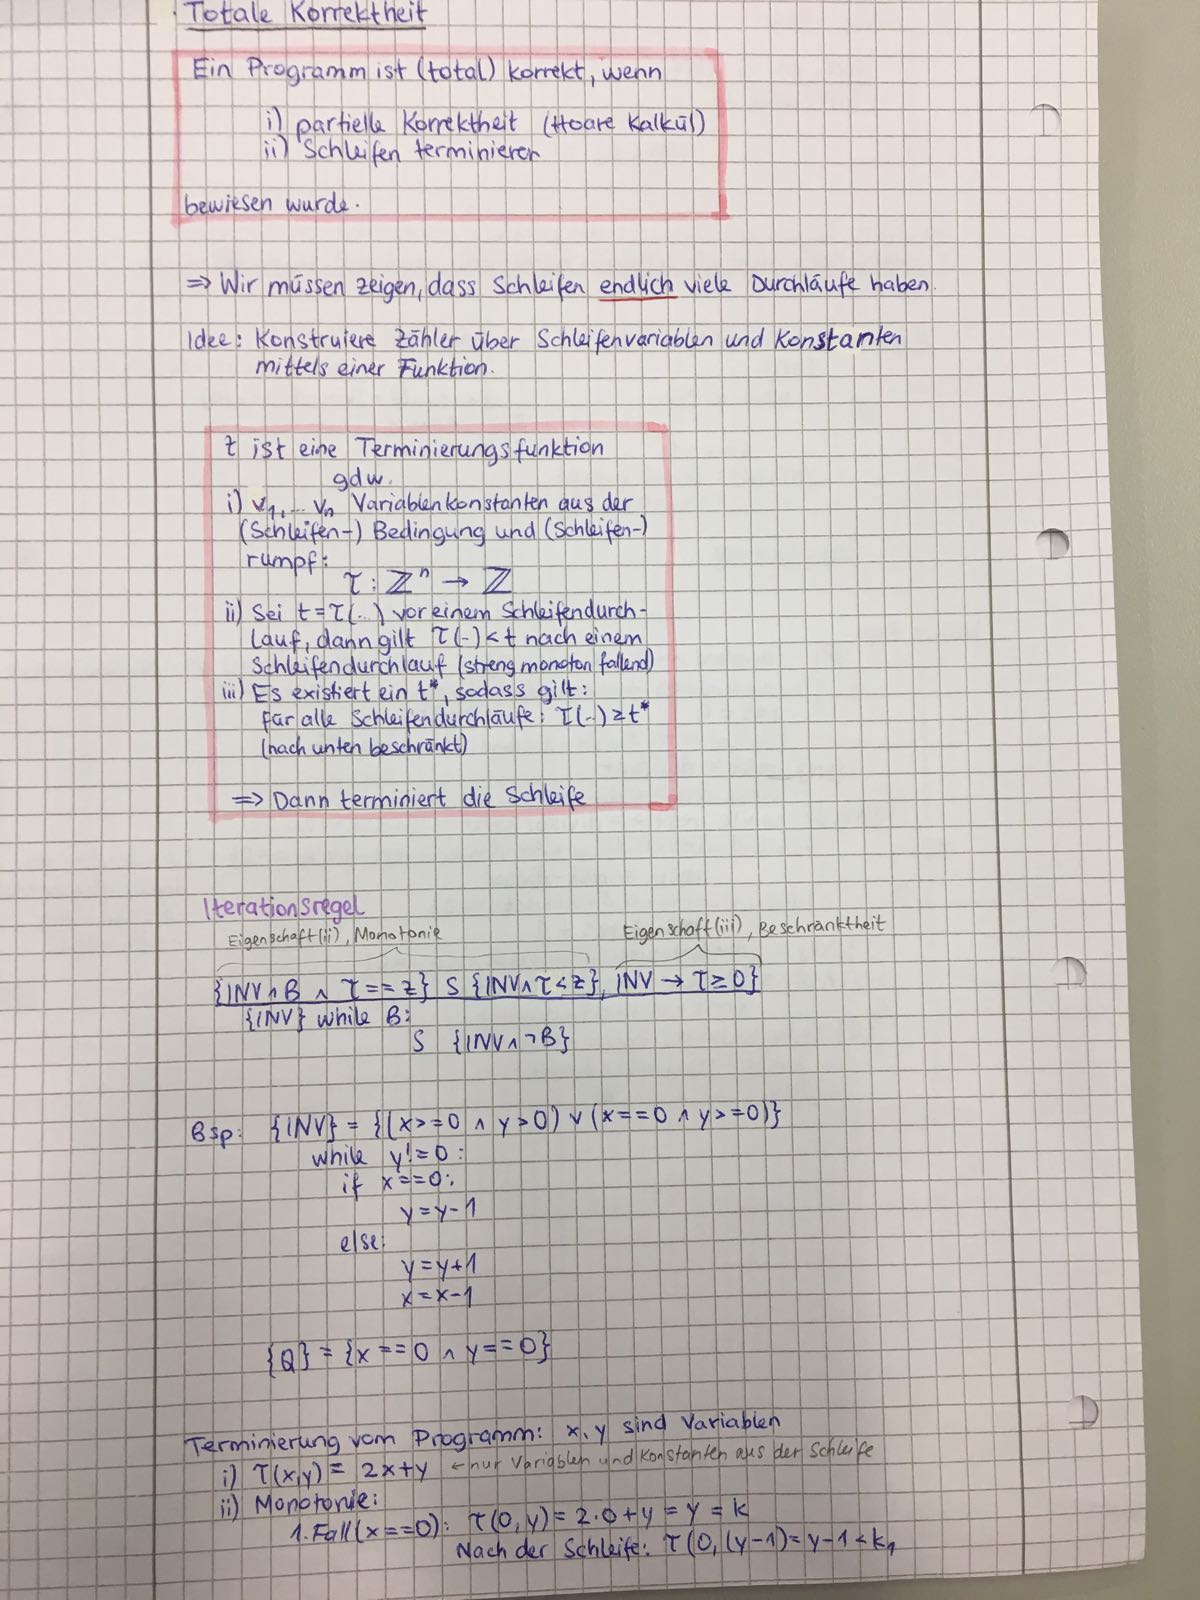 · Totale Korrektheit
Ein Programm ist (total) korrekt, wenn
i) partielle Korrektheit (Hoare Kalkül)
ii) Schleifen terminieren
bewiesen wurde.
⇒ Wir müssen zeigen, dass Schleifen endlich viele Durchläufe haben.
Idee: Konstruiere Zähler über Schleifenvariablen und Konstanten
mittels einer Funktion.
τ ist eine Terminierungsfunktion
gdw.
i) v₁, ... vₙ Variablenkonstanten aus der
(Schleifen-) Bedingung und (Schleifen-)
rumpf:
τ : ℤⁿ → ℤ
ii) Sei t = τ(...) vor einem Schleifendurch-
lauf, dann gilt τ(...) < t nach einem
Schleifendurchlauf (streng monoton fallend)
iii) Es existiert ein t*, sodass gilt:
für alle Schleifendurchläufe: τ(...) ≥ t*
(nach unten beschränkt)
⇒ Dann terminiert die Schleife
Iterationsregel
Eigenschaft (ii), Monotonie Eigenschaft (iii), Beschränktheit
{INV ∧ B ∧ τ == z} S {INV ∧ τ < z}, INV → τ ≥ 0}
{INV} while B:
S {INV ∧ ¬B}
Bsp: {INV} = {(x >= 0 ∧ y > 0) ∨ (x == 0 ∧ y >= 0)}
while y != 0 :
if x == 0:
y = y - 1
else:
y = y + 1
x = x - 1
{Q} = {x == 0 ∧ y == 0}
Terminierung vom Programm: x, y sind Variablen
i) τ(x,y) = 2x + y ← nur Variablen und Konstanten aus der Schleife
ii) Monotonie:
1. Fall (x == 0): τ(0, y) = 2·0 + y = y = k
Nach der Schleife: τ(0, (y-1) = y - 1 < k₁